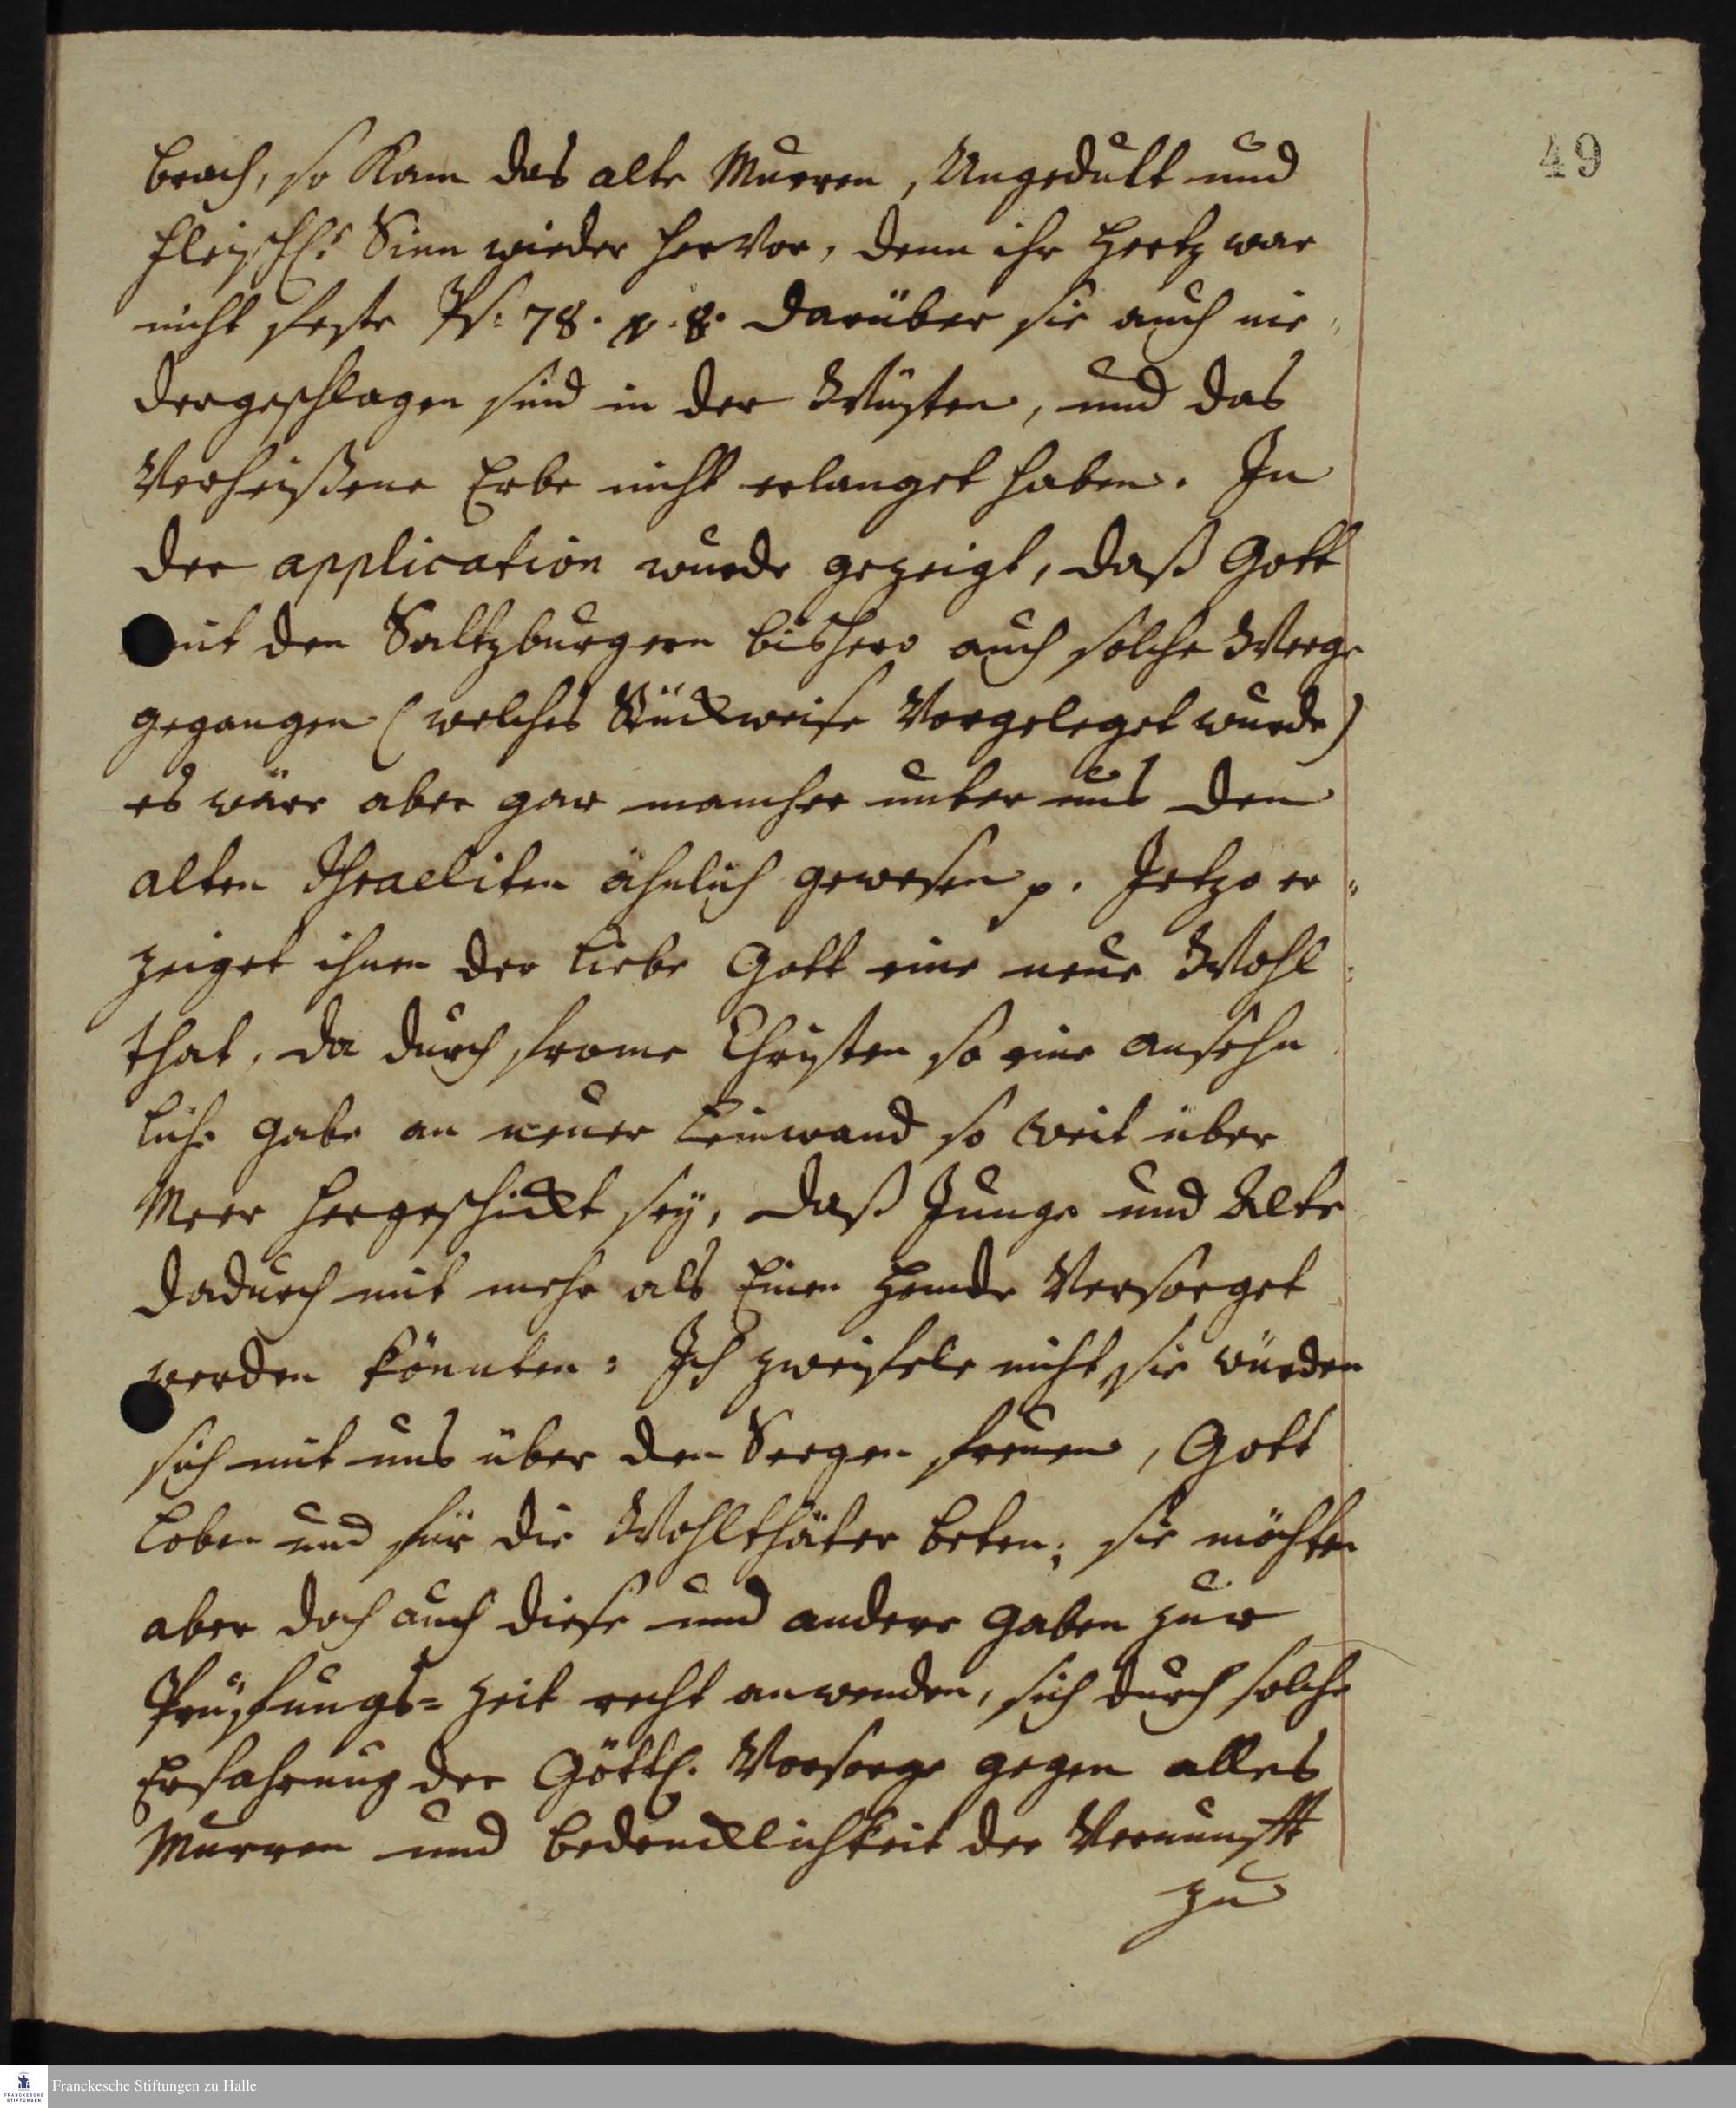 49
brach, so kam das alte Murren, Ungedult und
fleischl. Sinn wieder hervor, denn ihr Hertz war
nicht feste Ps: 78. v. 8. darüber sie auch nie„
dergeschlagen sind in der Wüsten, und das
Verheißene Erbe nicht erlanget haben. In
der application wurde gezeigt, daß Gott
mit den Saltzburgern bishero auch solche Wege
gegangen (welches Stückweise Vorgeleget wurde)
es wäre aber gar mancher unter uns den
alten Israeliten ähnlich gewesen p. Jetzo er„
zeiget ihnen der liebe Gott eine neue Wohl„
that, da durch frome Christen so eine ansehn
liche Gabe an neuer Leinwand so weit über
Meer hergeschickt sey, daß Junge und Alte
dadurch mit mehr als Einen Hemde Versorget
werden könnten: Ich zweifele nicht, sie würden
sich mit uns über den Seegen freuen, Gott
loben und für die Wohlthäter beten; sie möchten
aber doch auch diese und andere Gaben zur
Prüfungs-Zeit recht anwenden, sich durch solche
Erfahrung der Göttl. Vorsorge gegen alles
Murren und Bedencklichkeit der Vernunfft
zu
Franckesche Stiftungen zu Halle
FRANCKESCHE
STIFTUNGEN